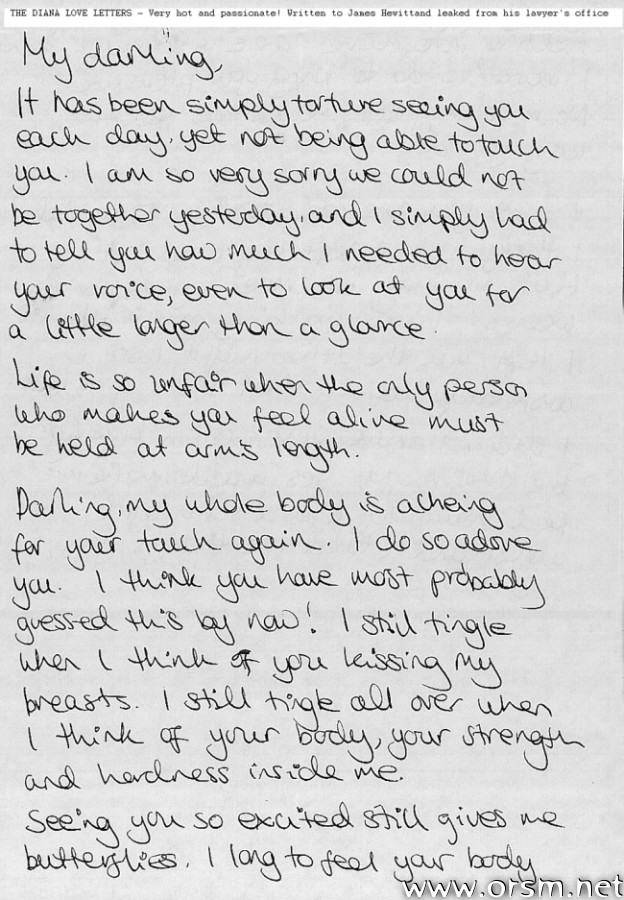 THE DIANA LOVE LETTERS - Very hot and passionate! Written to James Hewittand leaked from his lawyer's office
My darling,
It has been simply torture seeing you
each day, yet not being able to touch
you. I am so very sorry we could not
be together yesterday, and I simply had
to tell you how much I needed to hear
your voice, even to look at you for
a little longer than a glance.
Life is so unfair when the only person
who makes you feel alive must
be held at arms length.
Darling, my whole body is acheing
for your touch again. I do so adore
you. I think you have most probably
guessed this by now! I still tingle
when I think of you kissing my
breasts. I still tingle all over when
I think of your body, your strength
and hardness inside me.
Seeing you so excited still gives me
butterflies. I long to feel your body
www.orsm.net